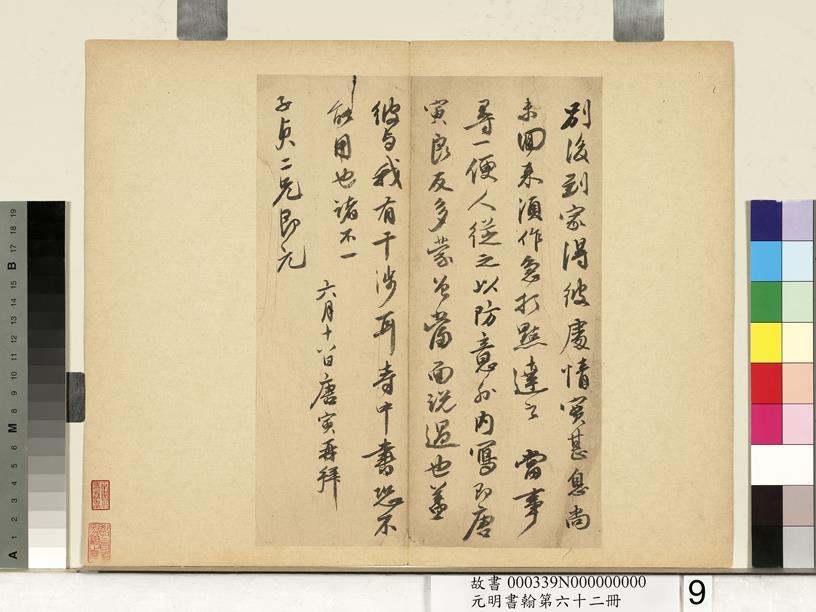 別後到家得彼處情實甚息尚
未回來須作急打點達之 當事
尋一便人從之以防意外內寫即唐
寅良友多蒙 當面說過也蓋
彼與我有干涉耳寺中書恐不
能用也諸不一
六月十八日唐寅再拜
子貞二兄即元
故書 000339N000000000
元明書翰第六十二冊
9
A 1 2 3 4 5 6 M 8 9 10 11 12 13 14 15 B 17 18 19